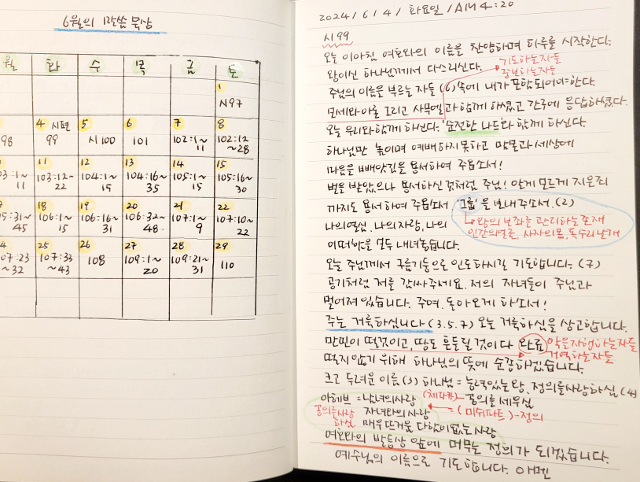 6월의 말씀 묵상
월 화 수 목 금 토
1
시97
4 시편 5 6 7 8
98 99 시100 101 102:1~11 102:12~28
11 12 13 14 15
103:1~11 103:12~22 104:1~15 104:16~35 105:1~15 105:16~30
18 19 20 21 22
105:31~45 106:1~15 106:16~31 106:32~48 107:1~9 107:10~22
25 26 27 28 29
107:23~32 107:33~43 108 109:1~20 109:21~31 110
2024/6/4/화요일/AM 4:20
시99
오늘 이 아침 여호와의 이름을 찬양하며 하루를 시작한다.
왕이신 하나님께서 다스리신다.
기도하는 자들
주님의 이름을 부르는 자들(6) 속에 내가 포함되어야한다.
모세와 아론 그리고 사무엘과 함께 하셨고 간구에 응답하셨다.
오늘 우리와 함께 하신다. 순전한 나드와 함께 하신다.
하나님만 높이며 예배하지 못하고 맘몬과 세상에
마음을 빼앗김을 용서하여 주옵소서!
벌을 받았으나 용서하신 것처럼 주님! 알게 모르게 지은 죄
까지도 용서하여 주옵소서 '그룹'을 보내주소서.(2)
나의 열심, 나의 자랑, 나의
↳왕의 보좌를 관리하는 존재
인간의 얼굴, 사자의 몸, 독수리 날개
오늘 주님께서 구름기둥으로 인도하시길 기도합니다. (7)
공기처럼 저를 감싸주세요. 저의 자녀들이 주님과
멀어져 있습니다. 주여, 돌아오게 하소서!
주는 거룩하십니다 (3.5.7) 오늘 거룩하심을 상고합니다.
만민이 떨것이고, 땅도 흔들릴 것이다 완료
악을 자행하는 자들
거역하는 자들
떨지 않기 위해 하나님의 뜻에 순종하겠습니다.
크고 두려운 이름(3) 하나님 = 능력있는 왕, 정의를 사랑하심(4)
아헤브 = 남녀의 사랑 (체다카)- 공의를 세우심
공의를 사랑하심 자녀와의 사랑 = (미쉬파트)-정의
매우 뜨거운 다함이 없는 사랑
여호와의 발등상 앞에 머무는 정의가 되겠습니다.
예수님의 이름으로 기도합니다. 아멘